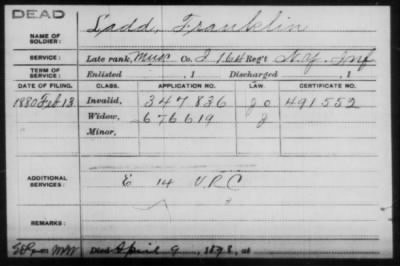 DEAD
NAME OF SOLDIER: Ladd, Franklin
SERVICE: Late rank, Musc Co. I, 16th Reg't N.Y. Inf
TERM OF SERVICE: Enlisted , 1 Discharged , 1
DATE OF FILING. CLASS. APPLICATION NO. LAW. CERTIFICATE NO.
1880 Feb 13 Invalid, 347,836 491552
Widow, 676619
Minor,
ADDITIONAL SERVICES: E 14 V.R.C
REMARKS:
Died April 9, 1898, at